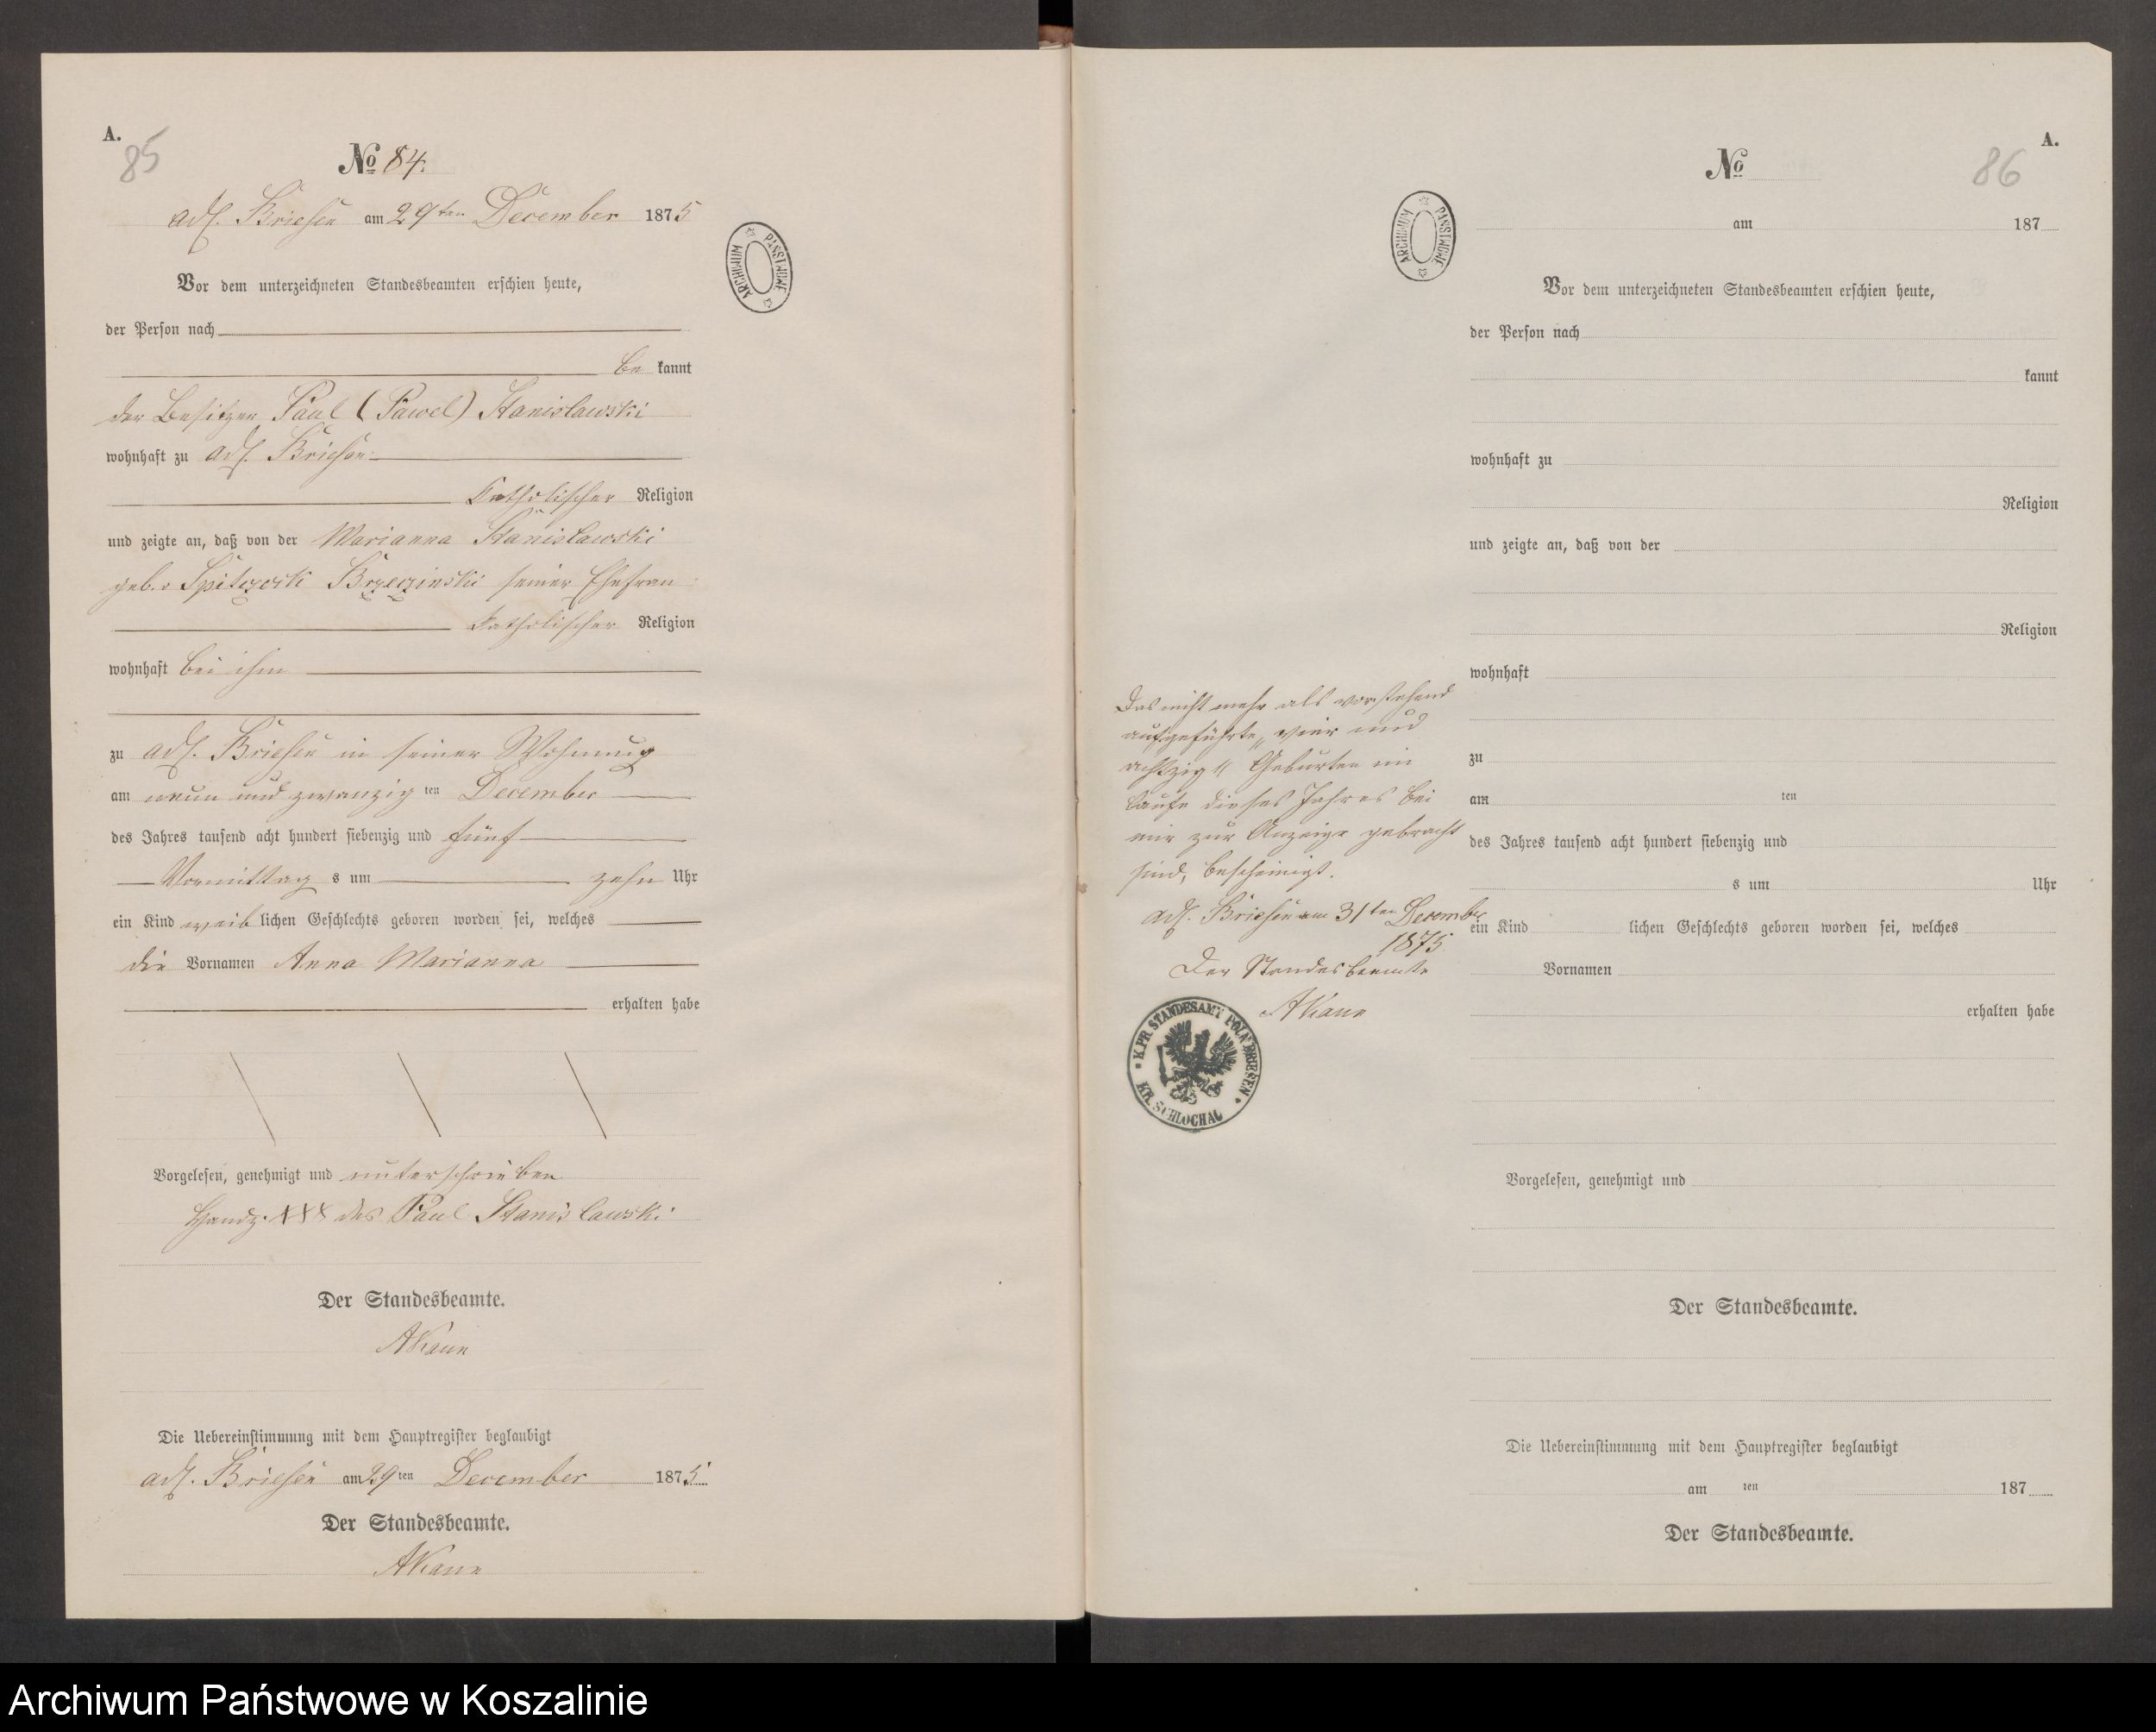 A.
85
No 84.
adl. Briesen am 29ten December 1875
Vor dem unterzeichneten Standesbeamten erschien heute,
der Person nach
be kannt
der Besitzer Paul (Pawel) Stanislawski
wohnhaft zu adl. Briesen
katholischer Religion
und zeigte an, daß von der Marianna Stanislawski
geb. Brzezinski seiner Ehefrau
katholischer Religion
wohnhaft bei ihm
zu adl. Briesen in seiner Wohnung
am neun und zwanzig ten December
des Jahres tausend acht hundert siebenzig und fünf
Vormittag s um zehn Uhr
ein Kind weib lichen Geschlechts geboren worden sei, welches
die Vornamen Anna Marianna
erhalten habe
Vorgelesen, genehmigt und unterschrieben
Handz. XXX des Paul Stanislawski
Der Standesbeamte.
Die Uebereinstimmung mit dem Hauptregister beglaubigt
adl. Briesen am 29ten December 1875
Der Standesbeamte.
ARCHIWUM PAŃSTWOWE
A.
86
No
am 187
Vor dem unterzeichneten Standesbeamten erschien heute,
der Person nach
kannt
wohnhaft zu
Religion
und zeigte an, daß von der
Religion
wohnhaft
zu
am ten
des Jahres tausend acht hundert siebenzig und
s um Uhr
ein Kind lichen Geschlechts geboren worden sei, welches
Vornamen
erhalten habe
Vorgelesen, genehmigt und
Der Standesbeamte.
Die Uebereinstimmung mit dem Hauptregister beglaubigt
am ten 187
Der Standesbeamte.
ARCHIWUM PAŃSTWOWE
Das nicht mehr als vorstehend
aufgeführte „vier und
achtzig“ Geburten im
Laufe dieses Jahres bei
mir zur Anzeige gebracht
sind, bescheinigt.
adl. Briesen am 31ten December
1875
Der Standesbeamte
K. PR. STANDESAMT POLN. BRIESEN
KR. SCHLOCHAU
Archiwum Państwowe w Koszalinie